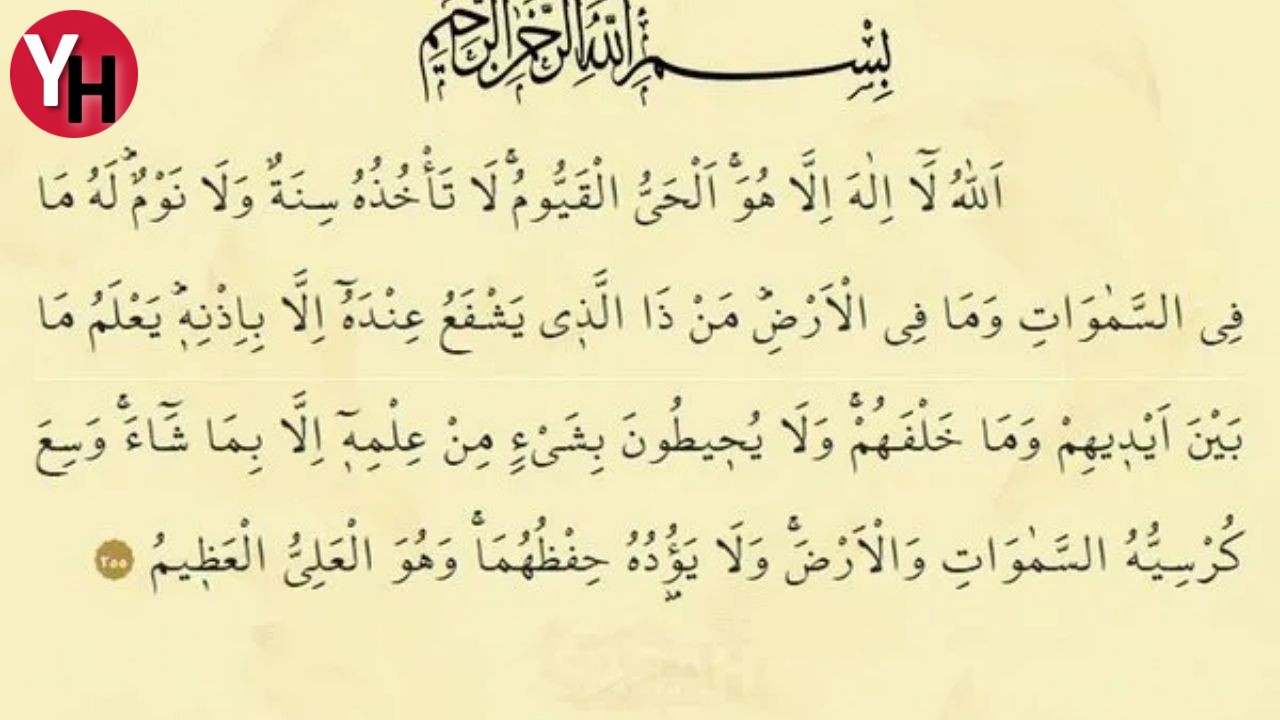 YH
بِسْمِ اللّٰهِ الرَّحْمٰنِ الرَّحِيمِ
اَللّٰهُ لَٓا اِلٰهَ اِلَّا هُوَۚ اَلْحَىُّ الْقَيُّومُۚ لَا تَأْخُذُهُ سِنَةٌ وَلَا نَوْمٌؕ لَهُ مَا
فِى السَّمٰوَاتِ وَمَا فِى الْاَرْضِؕ مَنْ ذَا الَّذٖى يَشْفَعُ عِنْدَهُٓ اِلَّا بِاِذْنِهٖؕ يَعْلَمُ مَا
بَيْنَ اَيْدٖيهِمْ وَمَا خَلْفَهُمْۚ وَلَا يُحٖيطُونَ بِشَىْءٍ مِنْ عِلْمِهٖٓ اِلَّا بِمَا شَٓاءَۚ وَسِعَ
كُرْسِيُّهُ السَّمٰوَاتِ وَالْاَرْضَۚ وَلَا يَؤُ۫دُهُ حِفْظُهُمَاۚ وَهُوَ الْعَلِىُّ الْعَظٖيمُ ٢٥٥